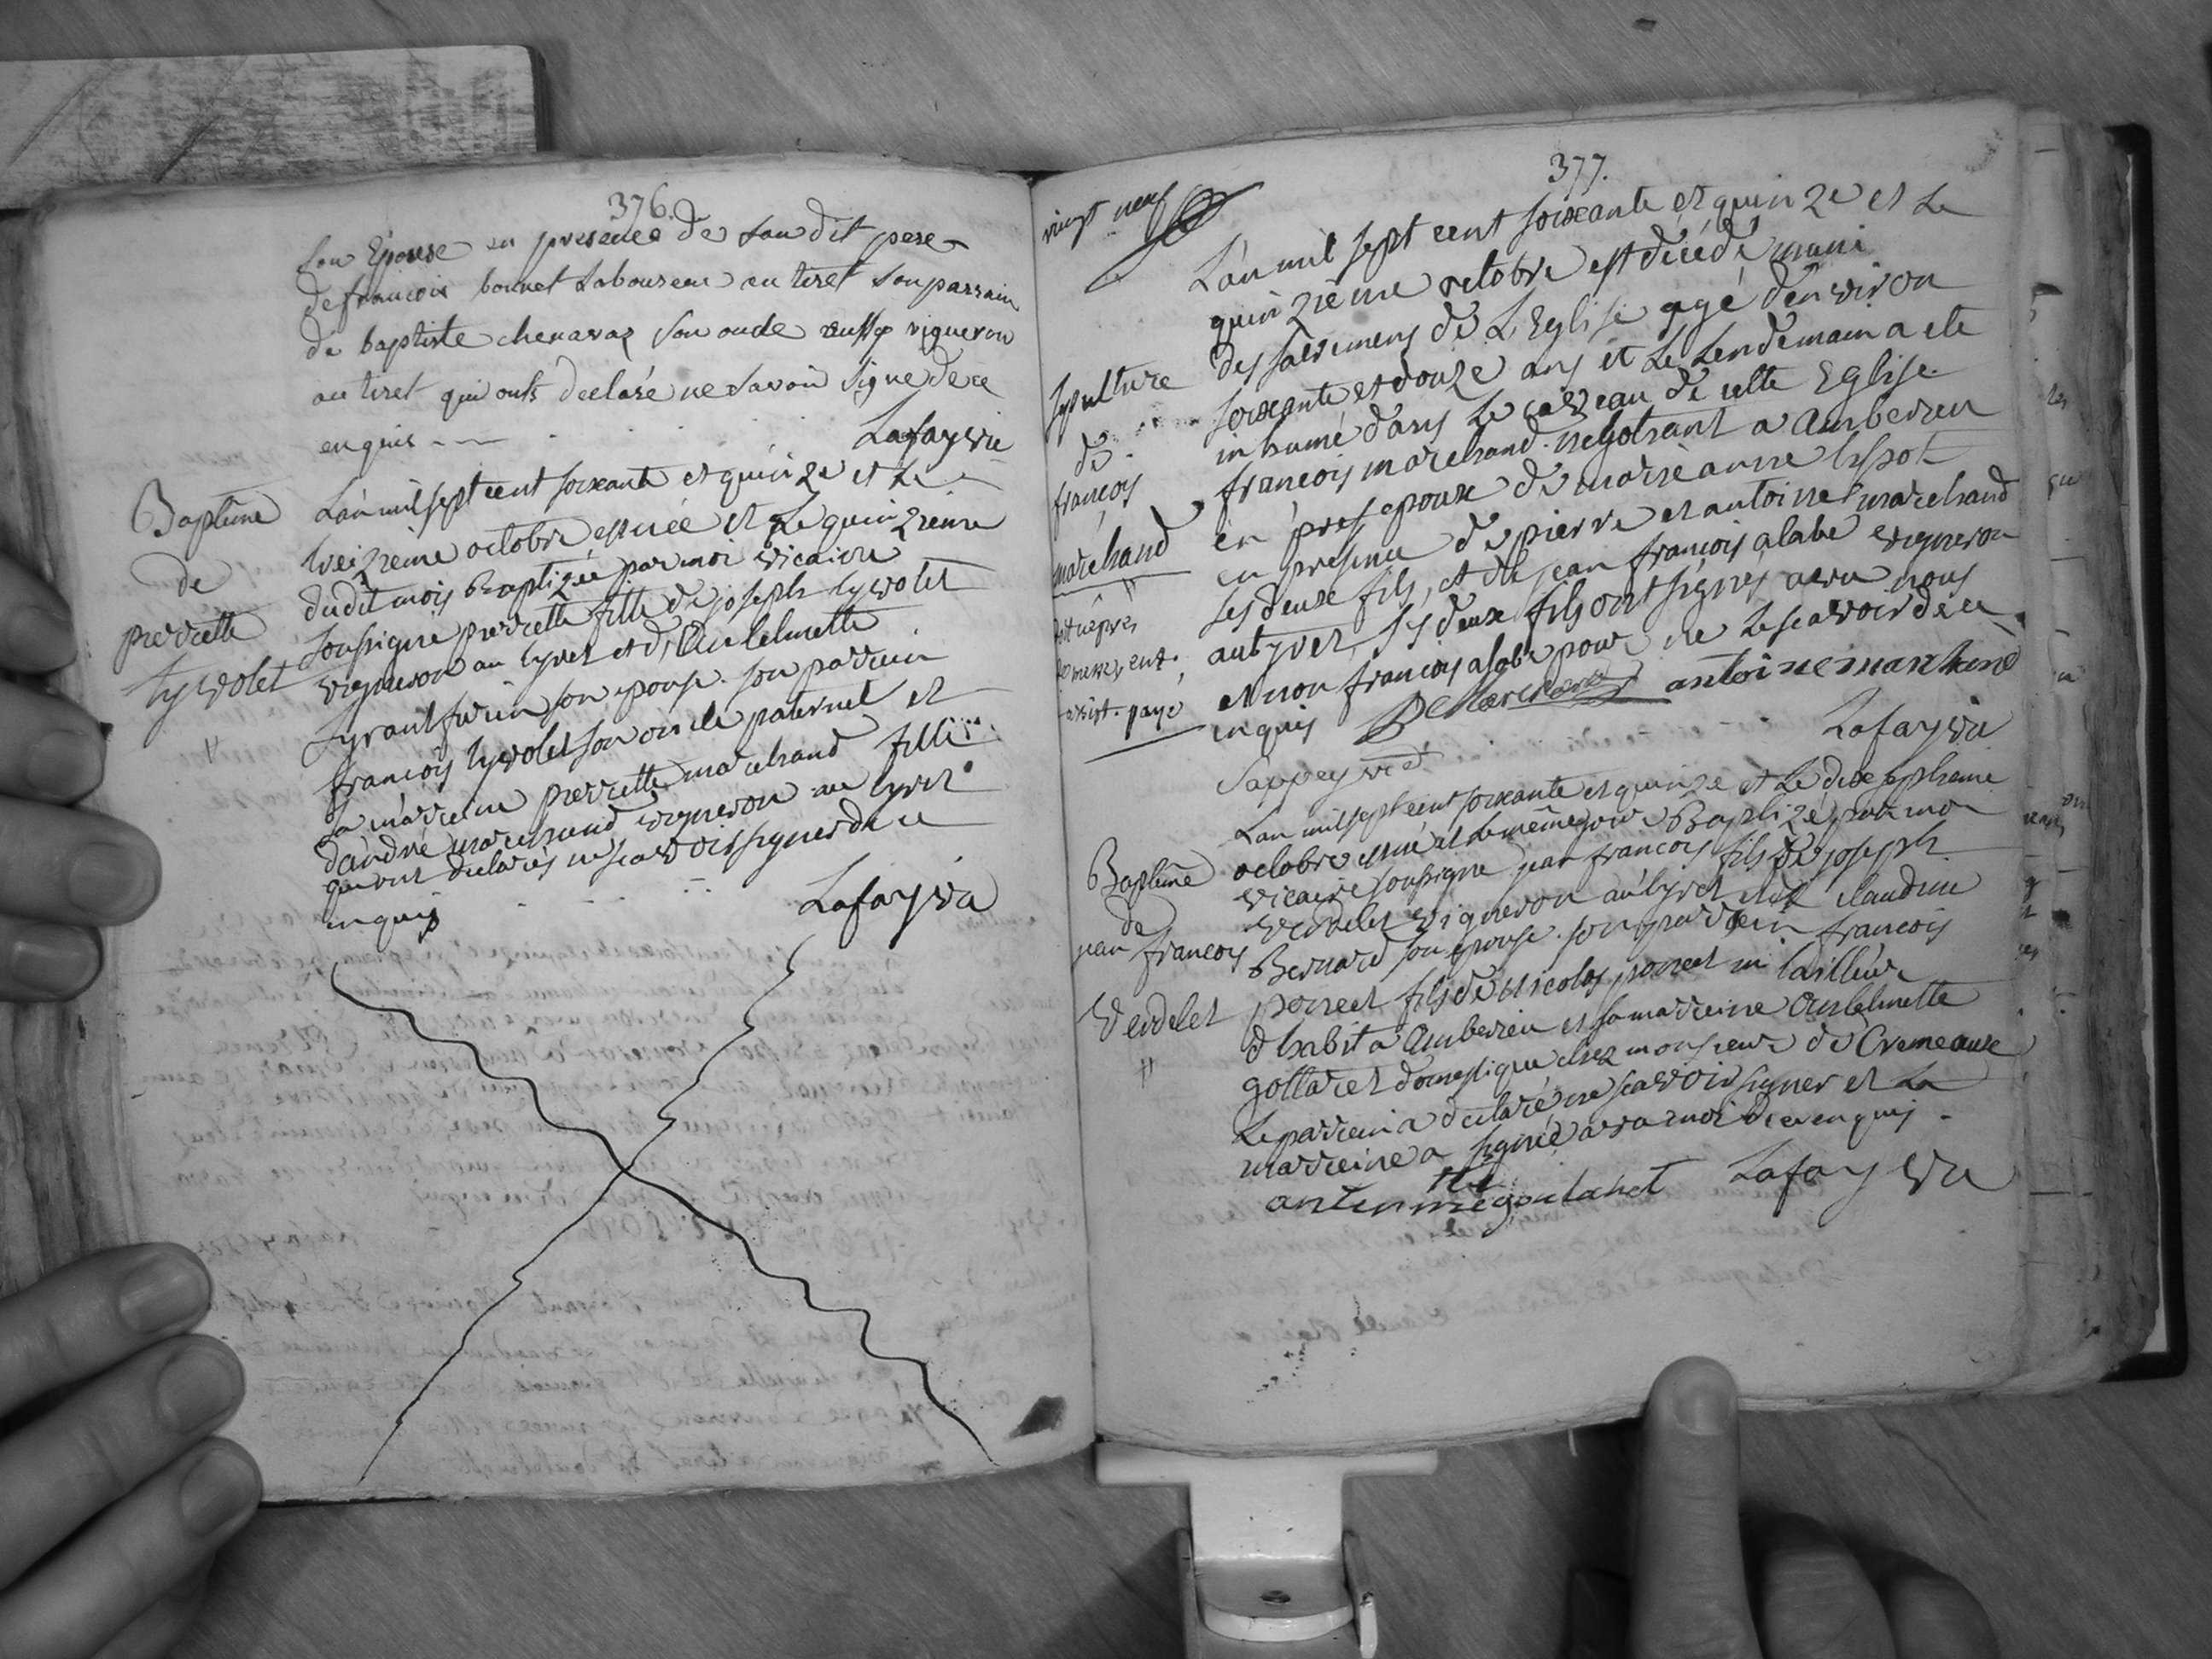 376.
son Epouse en presence de son dit pere
de francois bonnet Laboureur au tiret son parrain
de baptiste chenavaz son oncle aussy vigneron
au tiret qui onts declaré ne savoir signe de ce
enquis
Lafay vic
Baptême
de
pierrette
tyvolet
L'an mil sept cent soixante et quinze et le
treizieme octobre est née et Le quinzieme
dudit mois Baptizée par moi vicaire
soussigne pierrette fille de joseph tyvolet
vigneron au tyret et d'Anthelmette
son epouse. son parrein
francois tyvolet son oncle paternel et
sa marreine pierrette marchand fille
d'andré marchand vigneron au tyret
qui ont declarés ne scavoir signer de ce
enquis
Lafay vic
377.
vingt neuf
Sepulture
de
francois
marchand
L'an mil sept cent soixante et quinze et Le
quinzième octobre est décédé muni
des sacremens de L'Eglise agé d'environ
soixante et douze ans et Le Lendemain a ete
inhumé dans Le caveau de cette Eglise
francois marchand negotiant a Amberieu
en epoux de marie anne
en presence de pierre et antoine marchand
ses deux fils, et de jean francois alabe vigneron
au tyret, ses deux fils ont signés avec nous
et non francois alabe pour ne Le scavoir de ce
enquis
P Marchand
antoine marchand
Lafay vic
Sappey vic
Baptême
de
jean francois
Verdelet
L'an mil sept cent soixante et quinze et Le dix septieme
octobre est né et Le même jour Baptizé par moi
vicaire soussigne jean francois fils de joseph
Verdelet vigneron au tyret et de claudine
Bernard son epouse. son parrein francois
poncet fils de Nicolas poncet tailleur
d'habit a Amberieu et sa marreine Anthelmette
gollaret domestique chez monsieur de Cremeaux
Le parrein a declaré ne scavoir signer et La
marreine a signée avec moi de ce enquis
Lafay vic